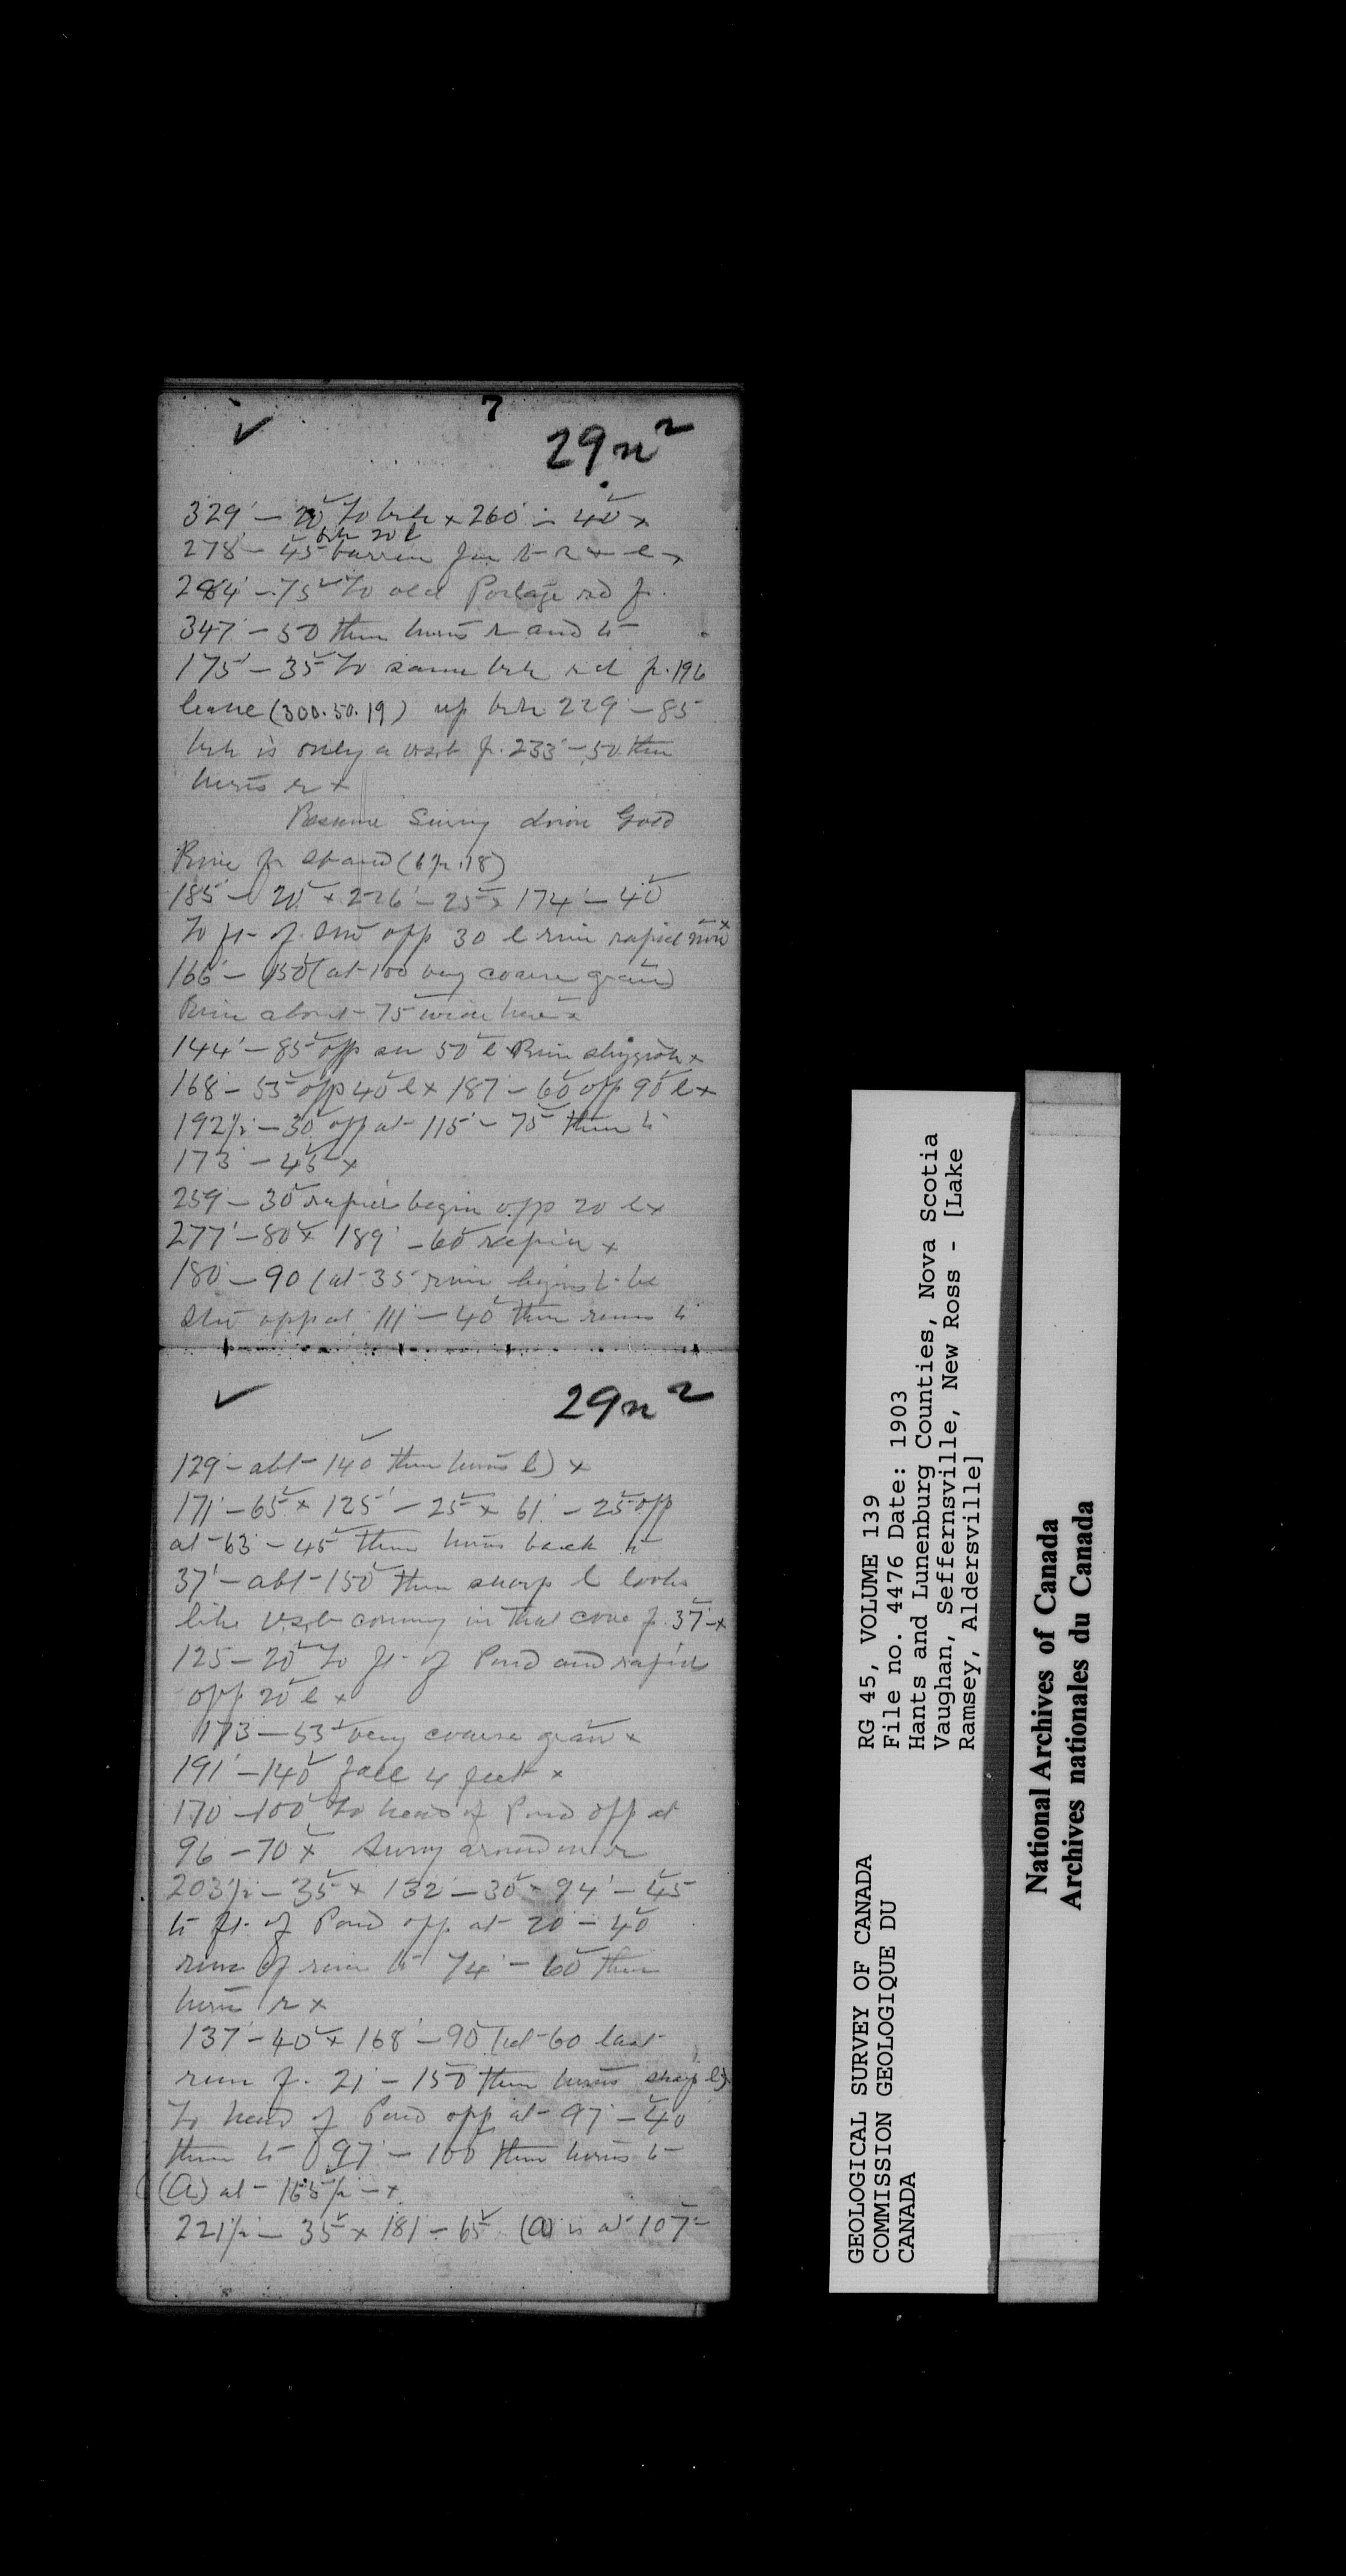 7
29 n2
329 – 20 to brk x 260 – 40 x
brk 20 l
278 – 45 barren far to r + l x
284 – 75 to old Portage rd f.
347 – 50 then turns r and to
175 – 35 to same brk rd f. 196
leave (300.50.19) up brk 229 – 85
brk is only a wsb f. 233 – 50 then
turns r x
Resume Survey down Gold
River fr (6 p. 18)
185 – 20 x 226 – 25 x 174 – 40
to ft of Still opp 30 l river rapid now x
166 – 150 (at 100 very coarse gran)
River about 75 wide here x
144 – 85 opp 50 l River sluggish x
168 – 55 opp 40 l x 187 – 60 opp 90 l x
192½ – 30 opp at 115 – 75 then to
173 – 45 x
259 – 30 rapids begin opp 20 l x
277 – 80 x 189 – 60 rapid x
180 – 90 (at 35 river begins to be
Still opp at 111 – 40 then runs to
29 n2
129 – abt 140 then turns l) x
171 – 65 x 125 – 25 x 61 – 25 opp
at 63 – 45 then turns back to
37 – abt 150 then sharp l looks
like wsb coming in that cove f. 37 x
125 – 20 to ft of Pond and rapids
opp 20 l x
173 – 53 very coarse gran x
191 – 140 fall 4 feet x
170 – 100 to head of Pond opp at
96 – 70 x Survey around on r
203½ – 35 x 132 – 30 x 94 – 45
to ft. of Pond opp at 20 – 40
run of river to 74 – 60 then
turns r x
137 – 40 x 168 – 90 (at 60 last
run f. 21 – 150 then turns sharp l)
to head of Pond opp at 97 – 40
then to 97 – 100 then turns to
(A) at 165½ – x
221½ – 35 x 181 – 65 (A) is at 107
GEOLOGICAL SURVEY OF CANADA
COMMISSION GEOLOGIQUE DU
CANADA
RG 45, VOLUME 139
File no. 4476 Date: 1903
Hants and Lunenburg Counties, Nova Scotia
Vaughan, Seffernsville, New Ross - [Lake
Ramsey, Aldersville]
National Archives of Canada
Archives nationales du Canada